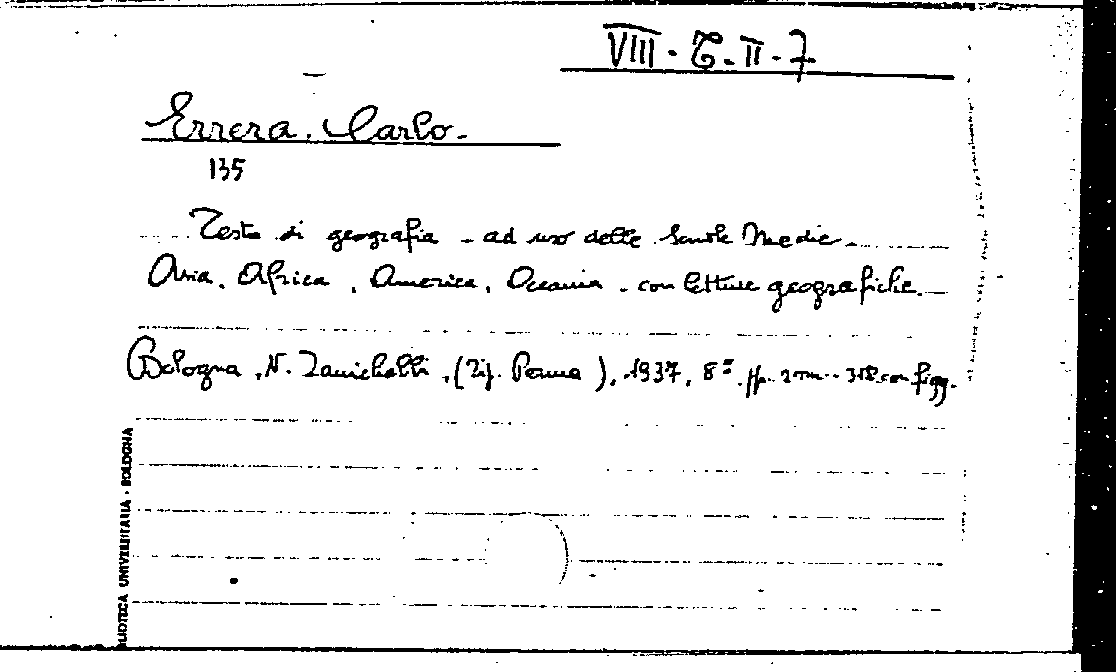 VIII · T. II · 7
Errera. Carlo.
135
Testo di geografia - ad uso delle Scuole Medie.
Asia. Africa, America, Oceania. con letture geografiche.
Bologna, N. Zanichelli, (Tip. Parma), 1937, 8° pp. 318 con figg.
BLIOTECA UNIVERSITARIA - BOLOGNA